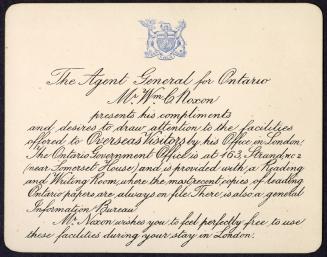 The Agent General for Ontario
Mr Wm C Noxon
presents his compliments
and desires to draw attention to the facilities
offered to Overseas Visitors by his Office in London.
The Ontario Government Office is at 163, Strand, W.C 2
(near Somerset House) and is provided with a Reading
and Writing Room, where the most recent copies of leading
Ontario papers are always on file. There is also a general
Information Bureau.
Mr. Noxon wishes you to feel perfectly free to use
these facilities during your stay in London.